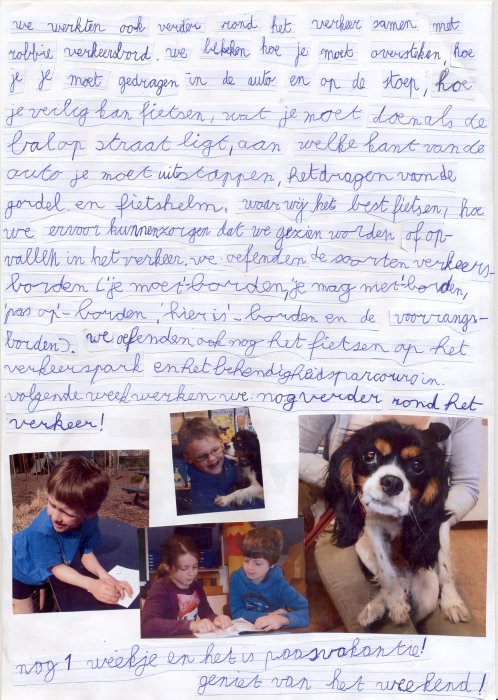 we werkten ook verder rond het verkeer samen met
robbie verkeersbord. we bekeken hoe je moet oversteken, hoe
je je moet gedragen in de auto en op de stoep, hoe
je veilig kan fietsen, wat je moet doen als de
bal op straat ligt, aan welke kant van de
auto je moet uitstappen, het dragen van de
gordel en fietshelm, waar wij het best fietsen, hoe
we ervoor kunnen zorgen dat we gezien worden of op-
vallen in het verkeer. we oefenden de soorten verkeers-
borden ('je moet'-borden, 'je mag niet'-borden,
'pas op'-borden, 'hier is'-borden en de voorrangs-
borden). we oefenden ook nog het fietsen op het
verkeerspark en het behendigheidsparcours in.
volgende week werken we nog verder rond het
verkeer!
nog 1 weekje en het is paasvakantie!
geniet van het weekend!